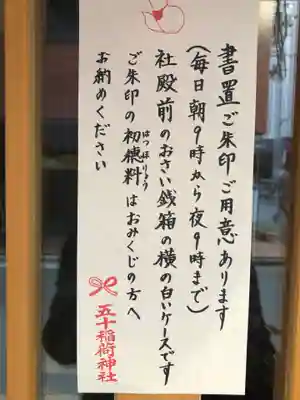 書置ご朱印ご用意あります
(毎日朝9時から夜9時まで)
社殿前のおさい銭箱の横の白いケースです
ご朱印の初穂料はおみくじの方へ
はつほりょう
お納めください
五十稲荷神社